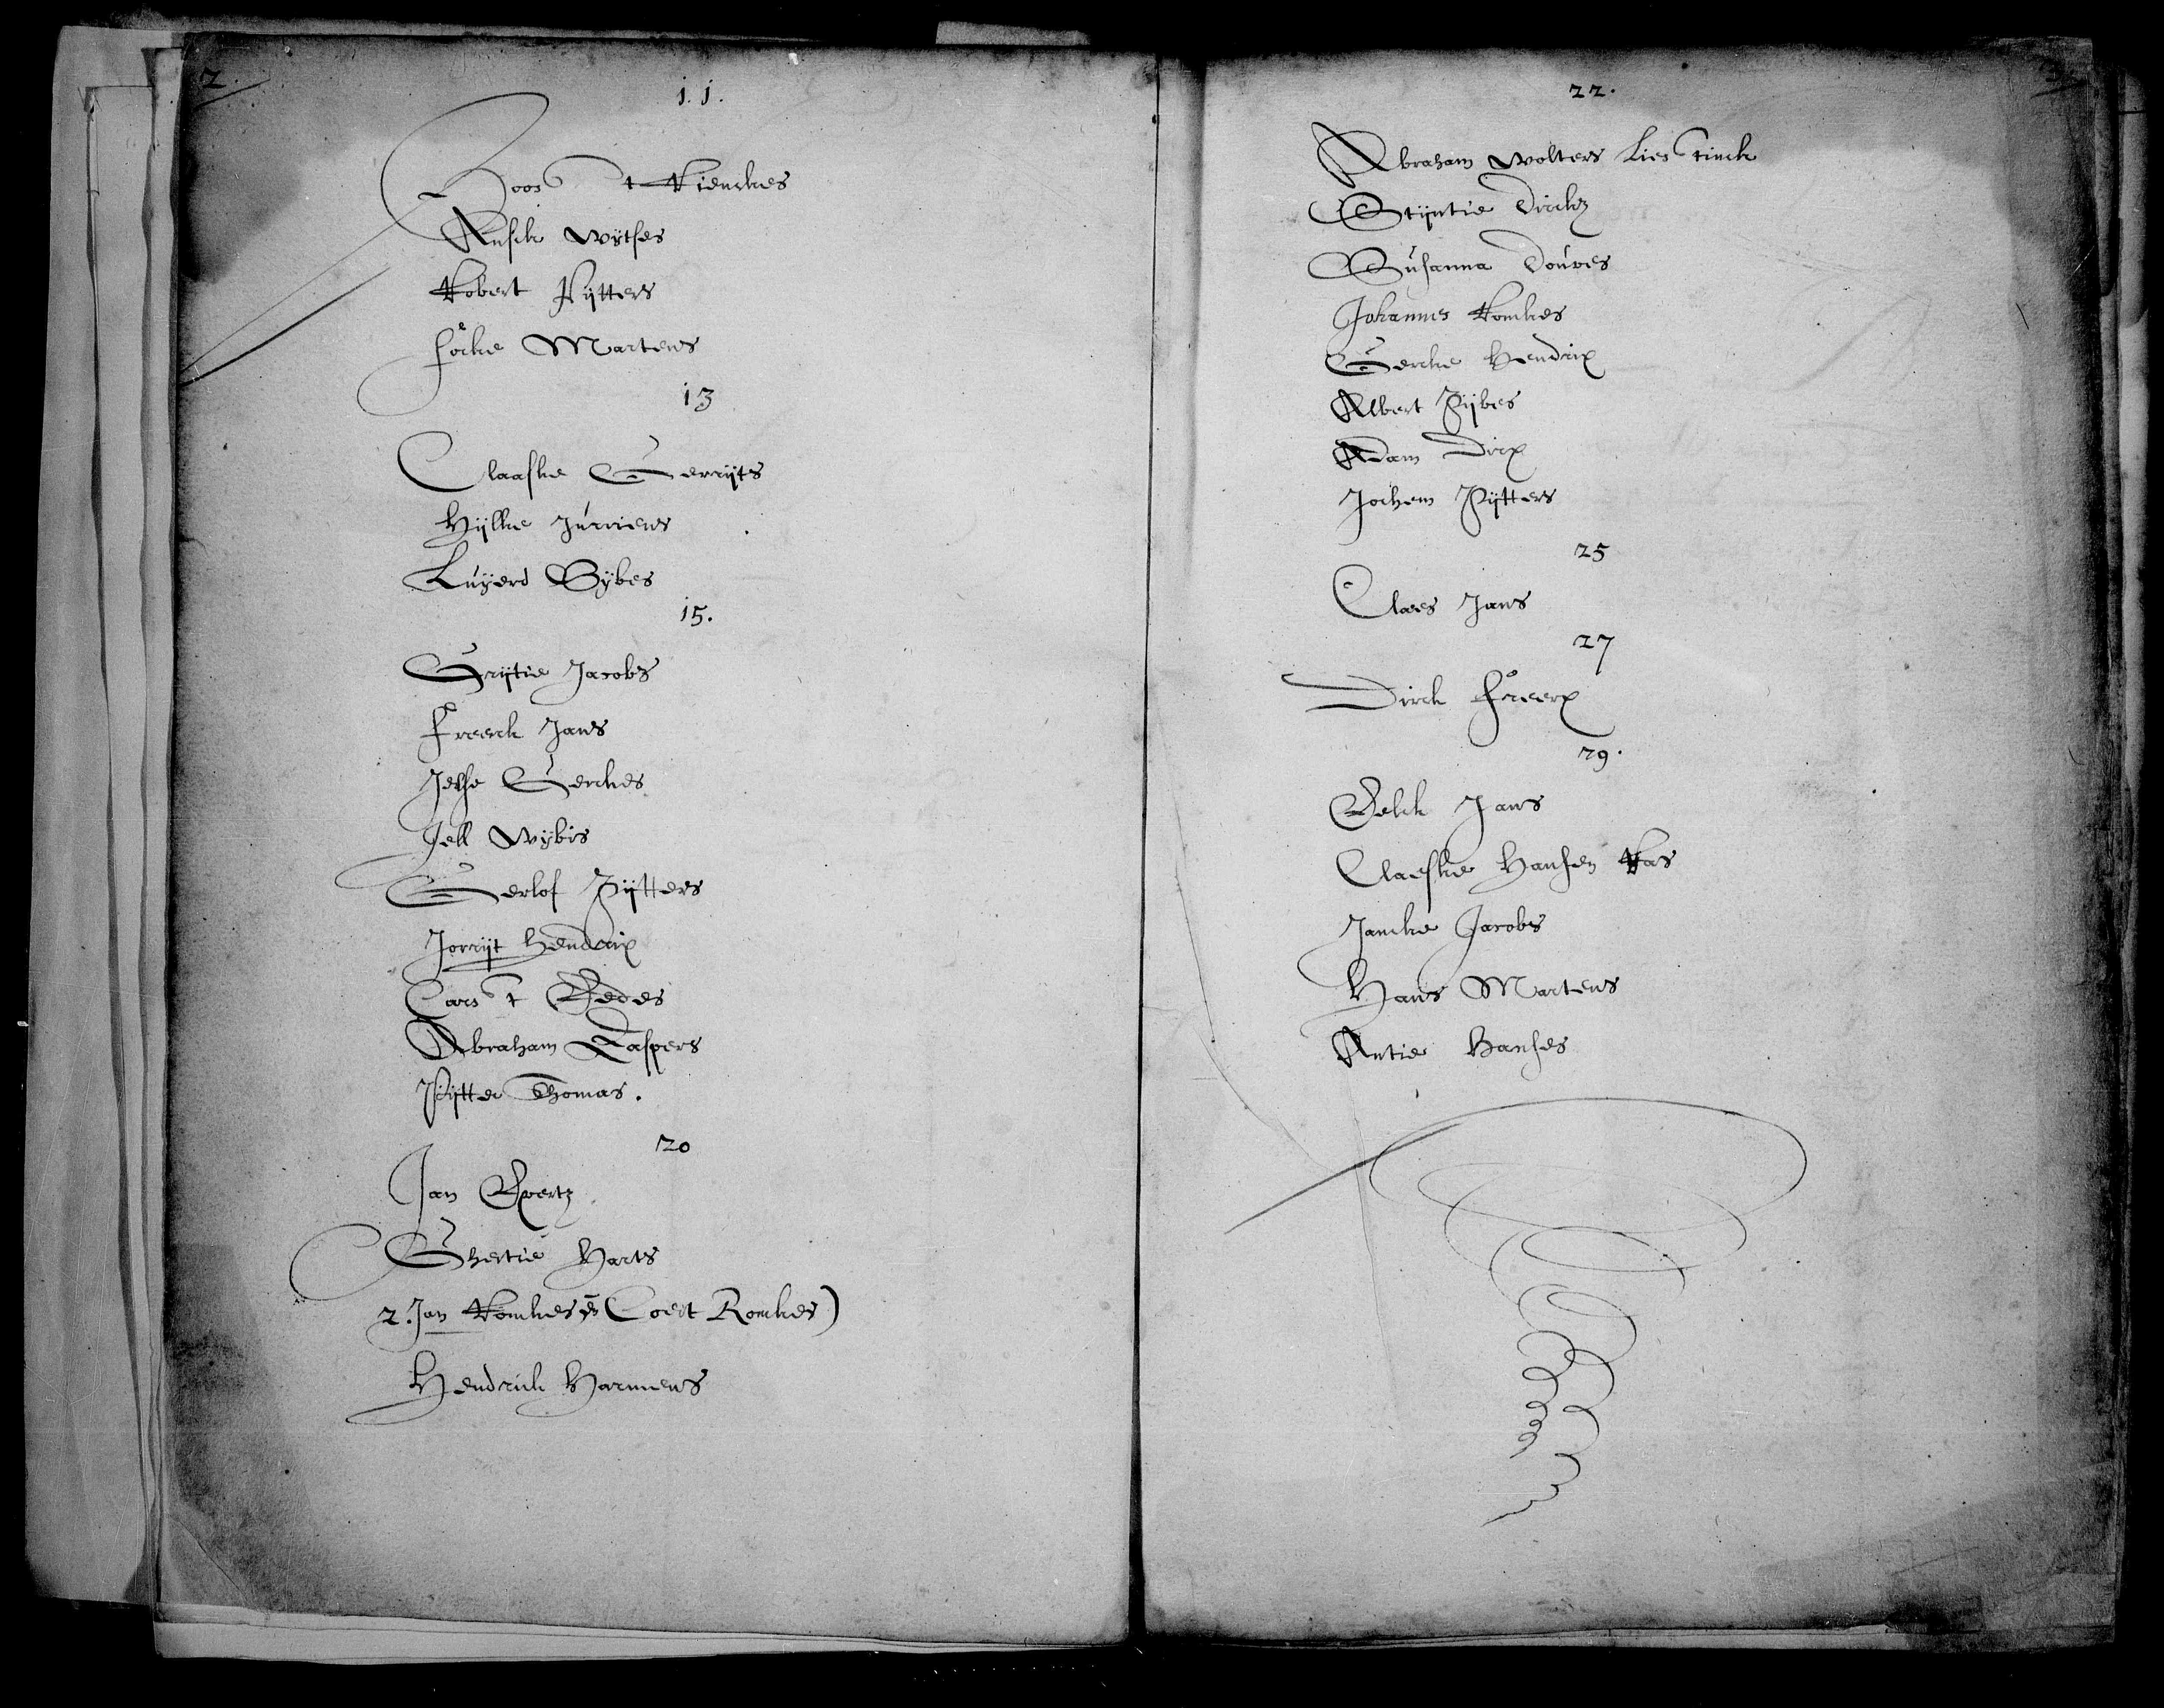 2
11.
Joost Rienckes
Ansck Wytses
Robert Pytters
Focke Martens
13
Claaske Gerryts
Hylke Jurriens
Luyerd Sybes
15.
Grytie Jacobs
Freerck Jans
Jelse Gerckes
Jell Wybis
Gerlof Pytters
Jorryt Hendrix
Carst Eedes
Abraham Caspers
Pytter Thomas.
20
Jan Evertz
Ghertie Harts
2. Jan Romkes en (Coert Romkes)
Hendrick Harmens
22.
Abraham Wolters Liestinck
Styntie Dirckz
Susanna Douwes
Johannes Romkes
Gercke Hendrix
Albert Pybes
Adam Dirx
Jochem Pytters
25
Claes Jans
27
Dirck Freerx
29.
Eelck Jans
Claeske Hansen Ras
Jancke Jacobs
Hans Martens
Antie Hanses